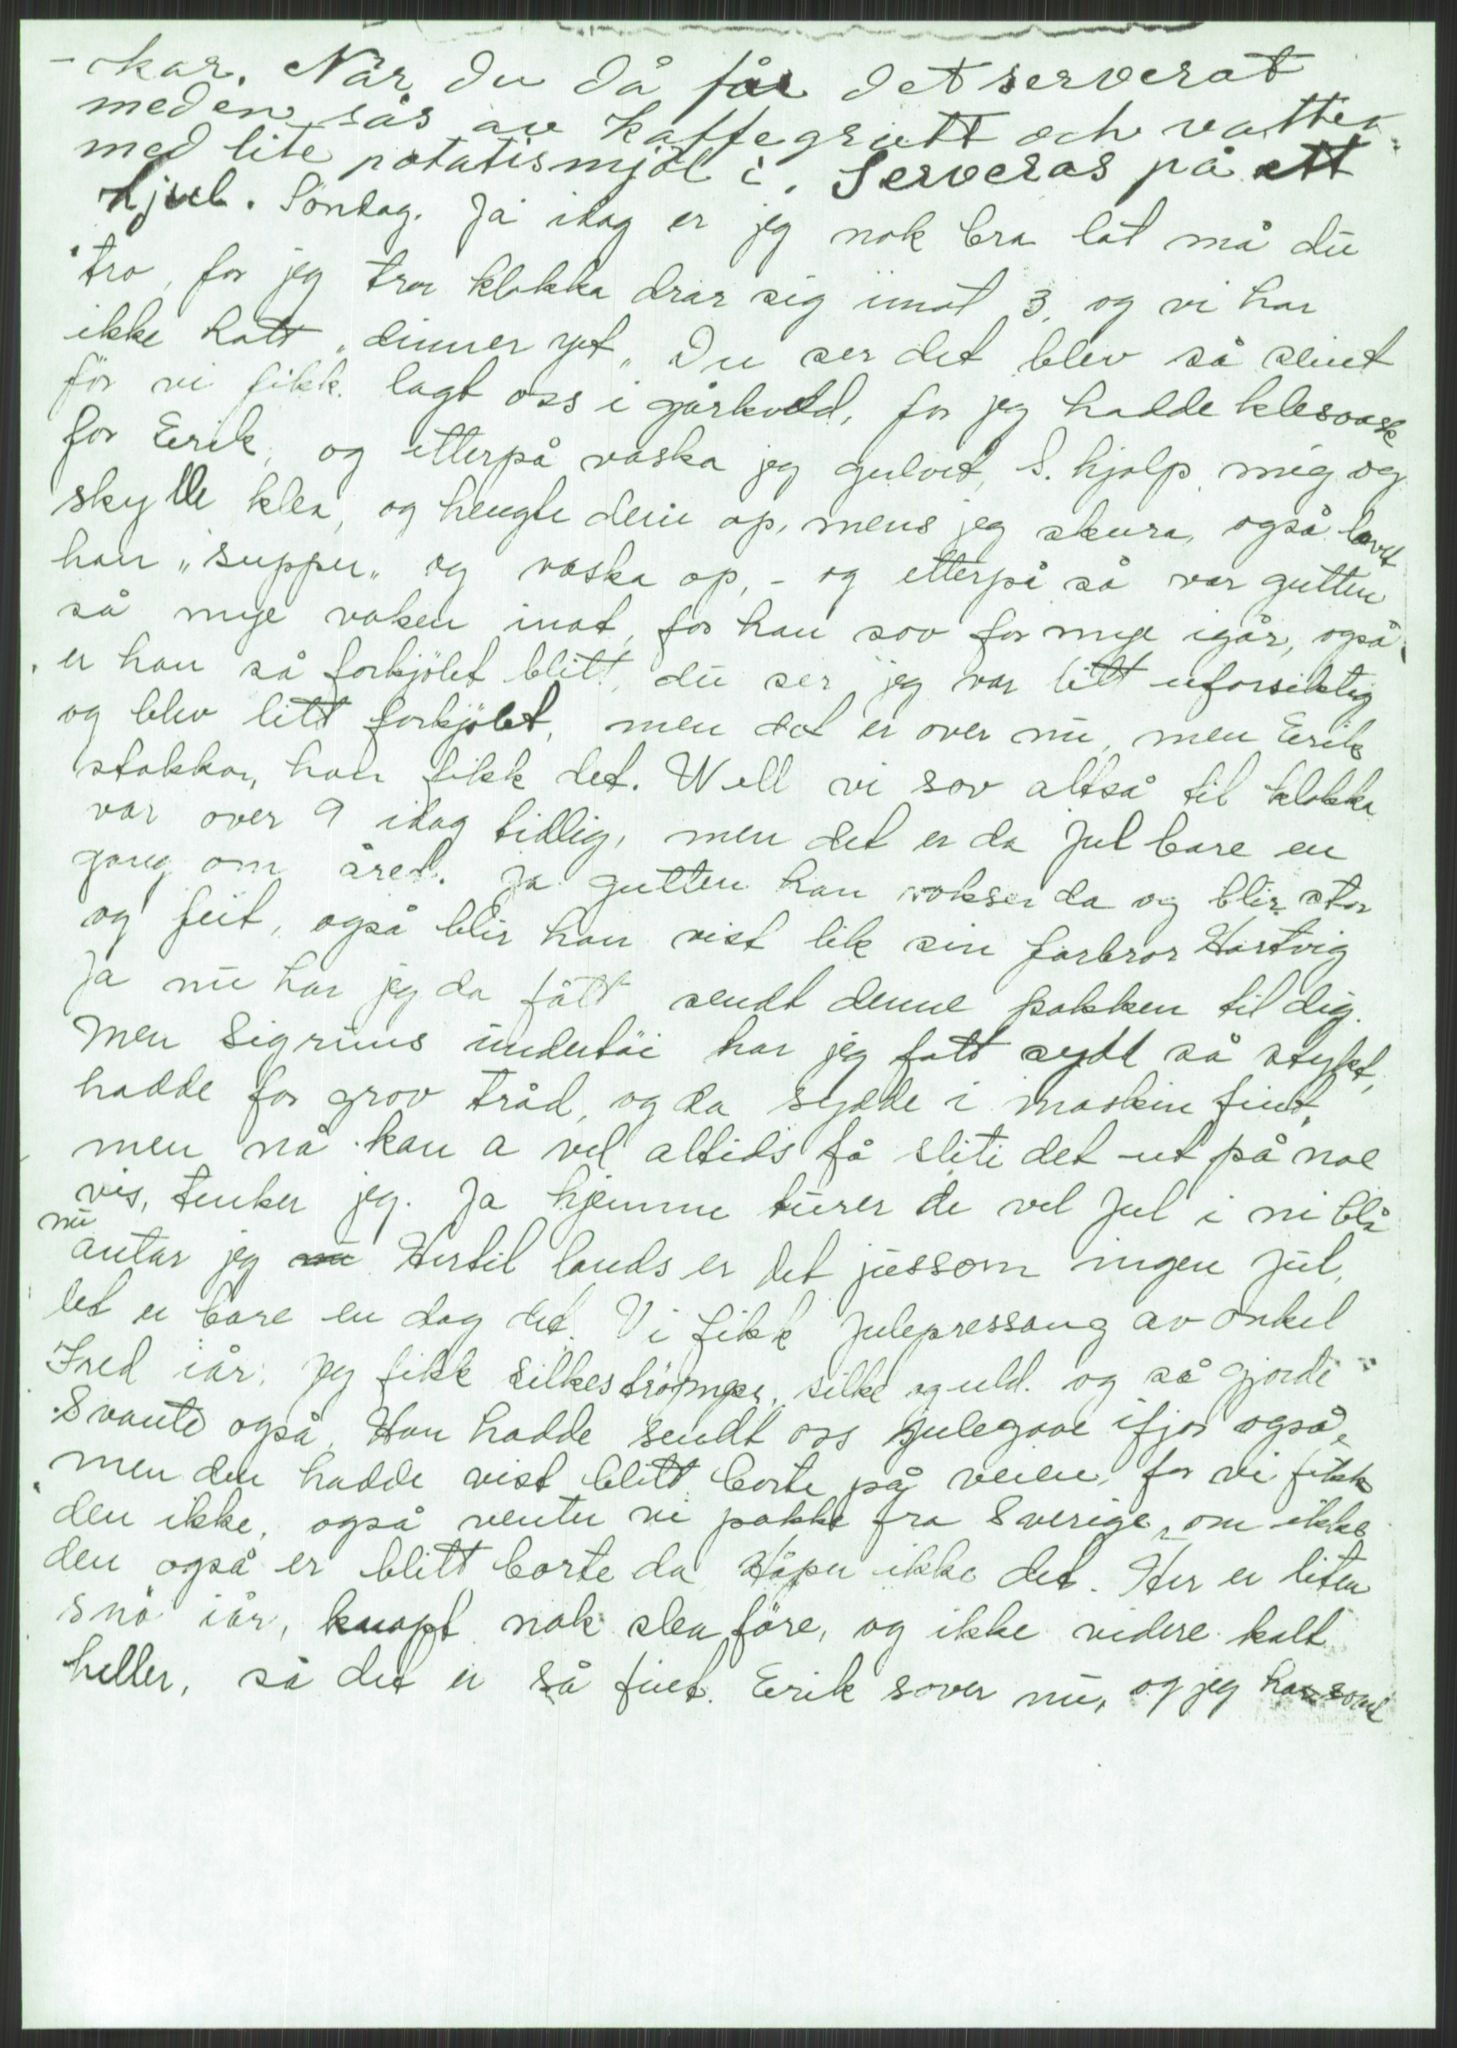 - kar. När du då får det serverat
med en sås av kaffegrutt och vatten
med lite potatismjöl i. Serveras på ett
hjul. Söndag. Ja idag er jeg nok bra lat må du
tro, for jeg tror klokka drar sig imot 3, og vi har
ikke hatt "dinner yet" Du ser det blev så seint
för vi fikk lagt oss i gårkveld, for jeg hadde klesvask
for Erik, og etterpå vaska jeg gulvet, S. hjalp mig og
skylle klea, og hengte dem op, mens jeg skura, også lavet
han "supper" og vaska op, - og etterpå så var gutten
så mye vaken inat, for han sov for mye igår, også
er han så forkjölet blitt, du ser jeg var litt uforsiktig
og blev litt forkjölet, men det er over nu, men Erik
stakkar, han fikk det. Well vi sov altså til klokka
var over 9 idag tidlig, men det er da Jul bare en
gang om året. Ja gutten han vokser da og blir stor
og feit, også blir han vist lik sin farbror Hartvig
Ja nu har jeg da fått sendt denne pakken til dig.
Men Sigruns undertöi har jeg fått sydd så stykt,
hadde for grov tråd, og da sydde i maskin fint,
men nå kan a vel altids få sliti det ut på noe
vis, tenker jeg. Ja hjemme turer de vel Jul i ni blå
nu
antar jeg Hertil lands er det jussom ingen Jul,
det er bare en dag det. Vi fikk julepressang av onkel
Fred iår, Jeg fikk silkeströmper, silke og uld. og så gjorde
Svante også, Han hadde sendt oss julegave ifjor også,
men den hadde vist blitt borte på veien, for vi fikk
den ikke, også venter vi pakke fra Sverige, om ikke
den også er blitt borte da, Håper ikke det. Her er liten
snö iår, knapt nok sleaföre, og ikke videre kalt
heller, så det er så fint. Erik sover nu, og jeg har